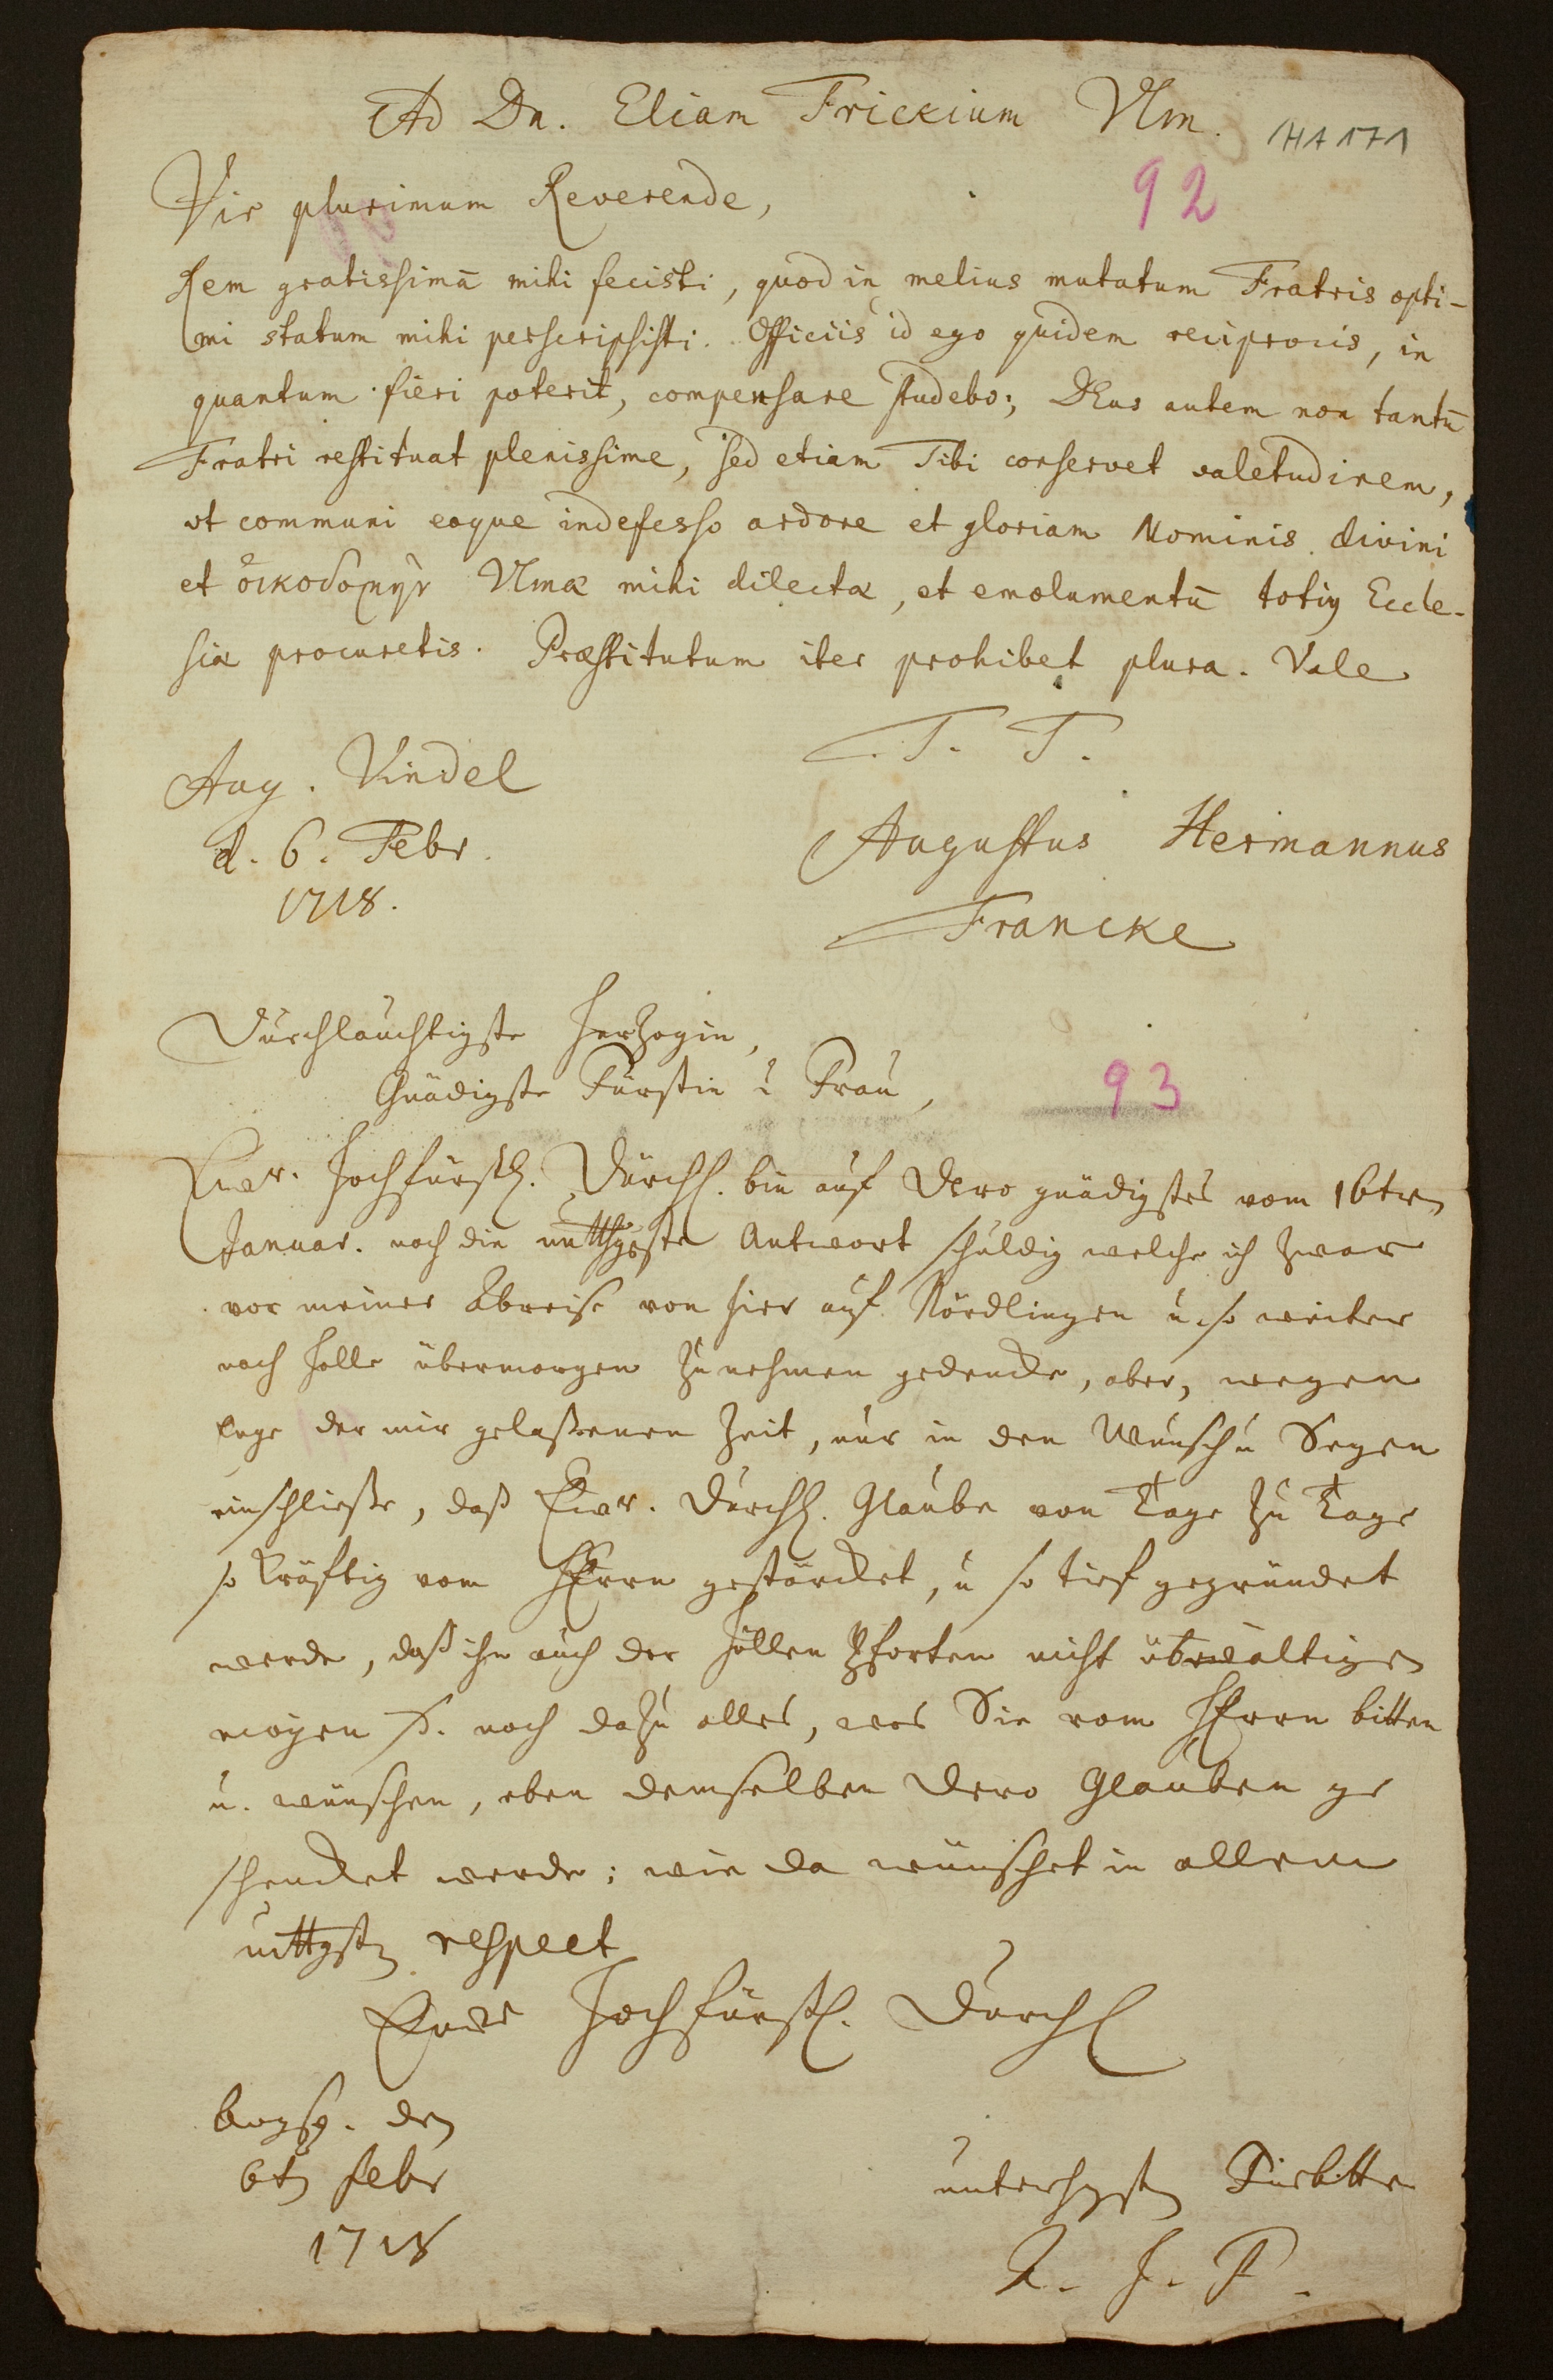 Ad Dn. Eliam Frickium Ulm.
1HA 171
Vir plurimum Reverende,
92
Rem gratissimā mihi fecisti, quod in melius mutatum Fratris opti-
mi statum mihi perscripsisti. Officiis id ego quidem reciprocis, in
quantum fieri poterit, compensare studebo; DEus autem non tantū
Fratri restituat plenissime, sed etiam Tibi conservet valetudinem,
ut communi eoque indefesso ardore et gloriam Nominis divini
et οἰκοδομὴν Ulmæ mihi dilectæ, et emolumentū totius Eccle-
siæ procuretis. Præstitutum iter prohibet plura. Vale
T. T.
Aug. Vindel
d. 6. Febr.
1718.
Augustus Hermannus
Francke
Durchlauchtigste Herzogin,
Gnädigste Fürstin u Frau,
93
Ewr. Hochfürstl. Durchl. bin auf Dero gnädigstes vom 16ten
Januar. noch die Antwort schuldig welche ich zwar
vor meiner Abreise von hier auf Nördlingen u. so weiter
nach Halle übermorgen zu nehmen gedencke, aber, wegen
enge der mir gelaßenen Zeit, nur in den Wunsch u Segen
einschließe, daß Ewr. Durchl. Glaube von Tage zu Tage
so kräftig vom HErrn gestärcket, u so tief gegründet
werde, daß ihn auch der Höllen Pforten nicht überwältigen
mögen noch dazu alles, was Sie vom HErrn bitten
u. wünschen, eben demselben Dero Glauben ge
schencket werde; wie da wünschet in allem
respect
Ewr Hochfürstl. Durchl
Augsp. den
6ten Febr
1718
Fürbitter
A. H. F.